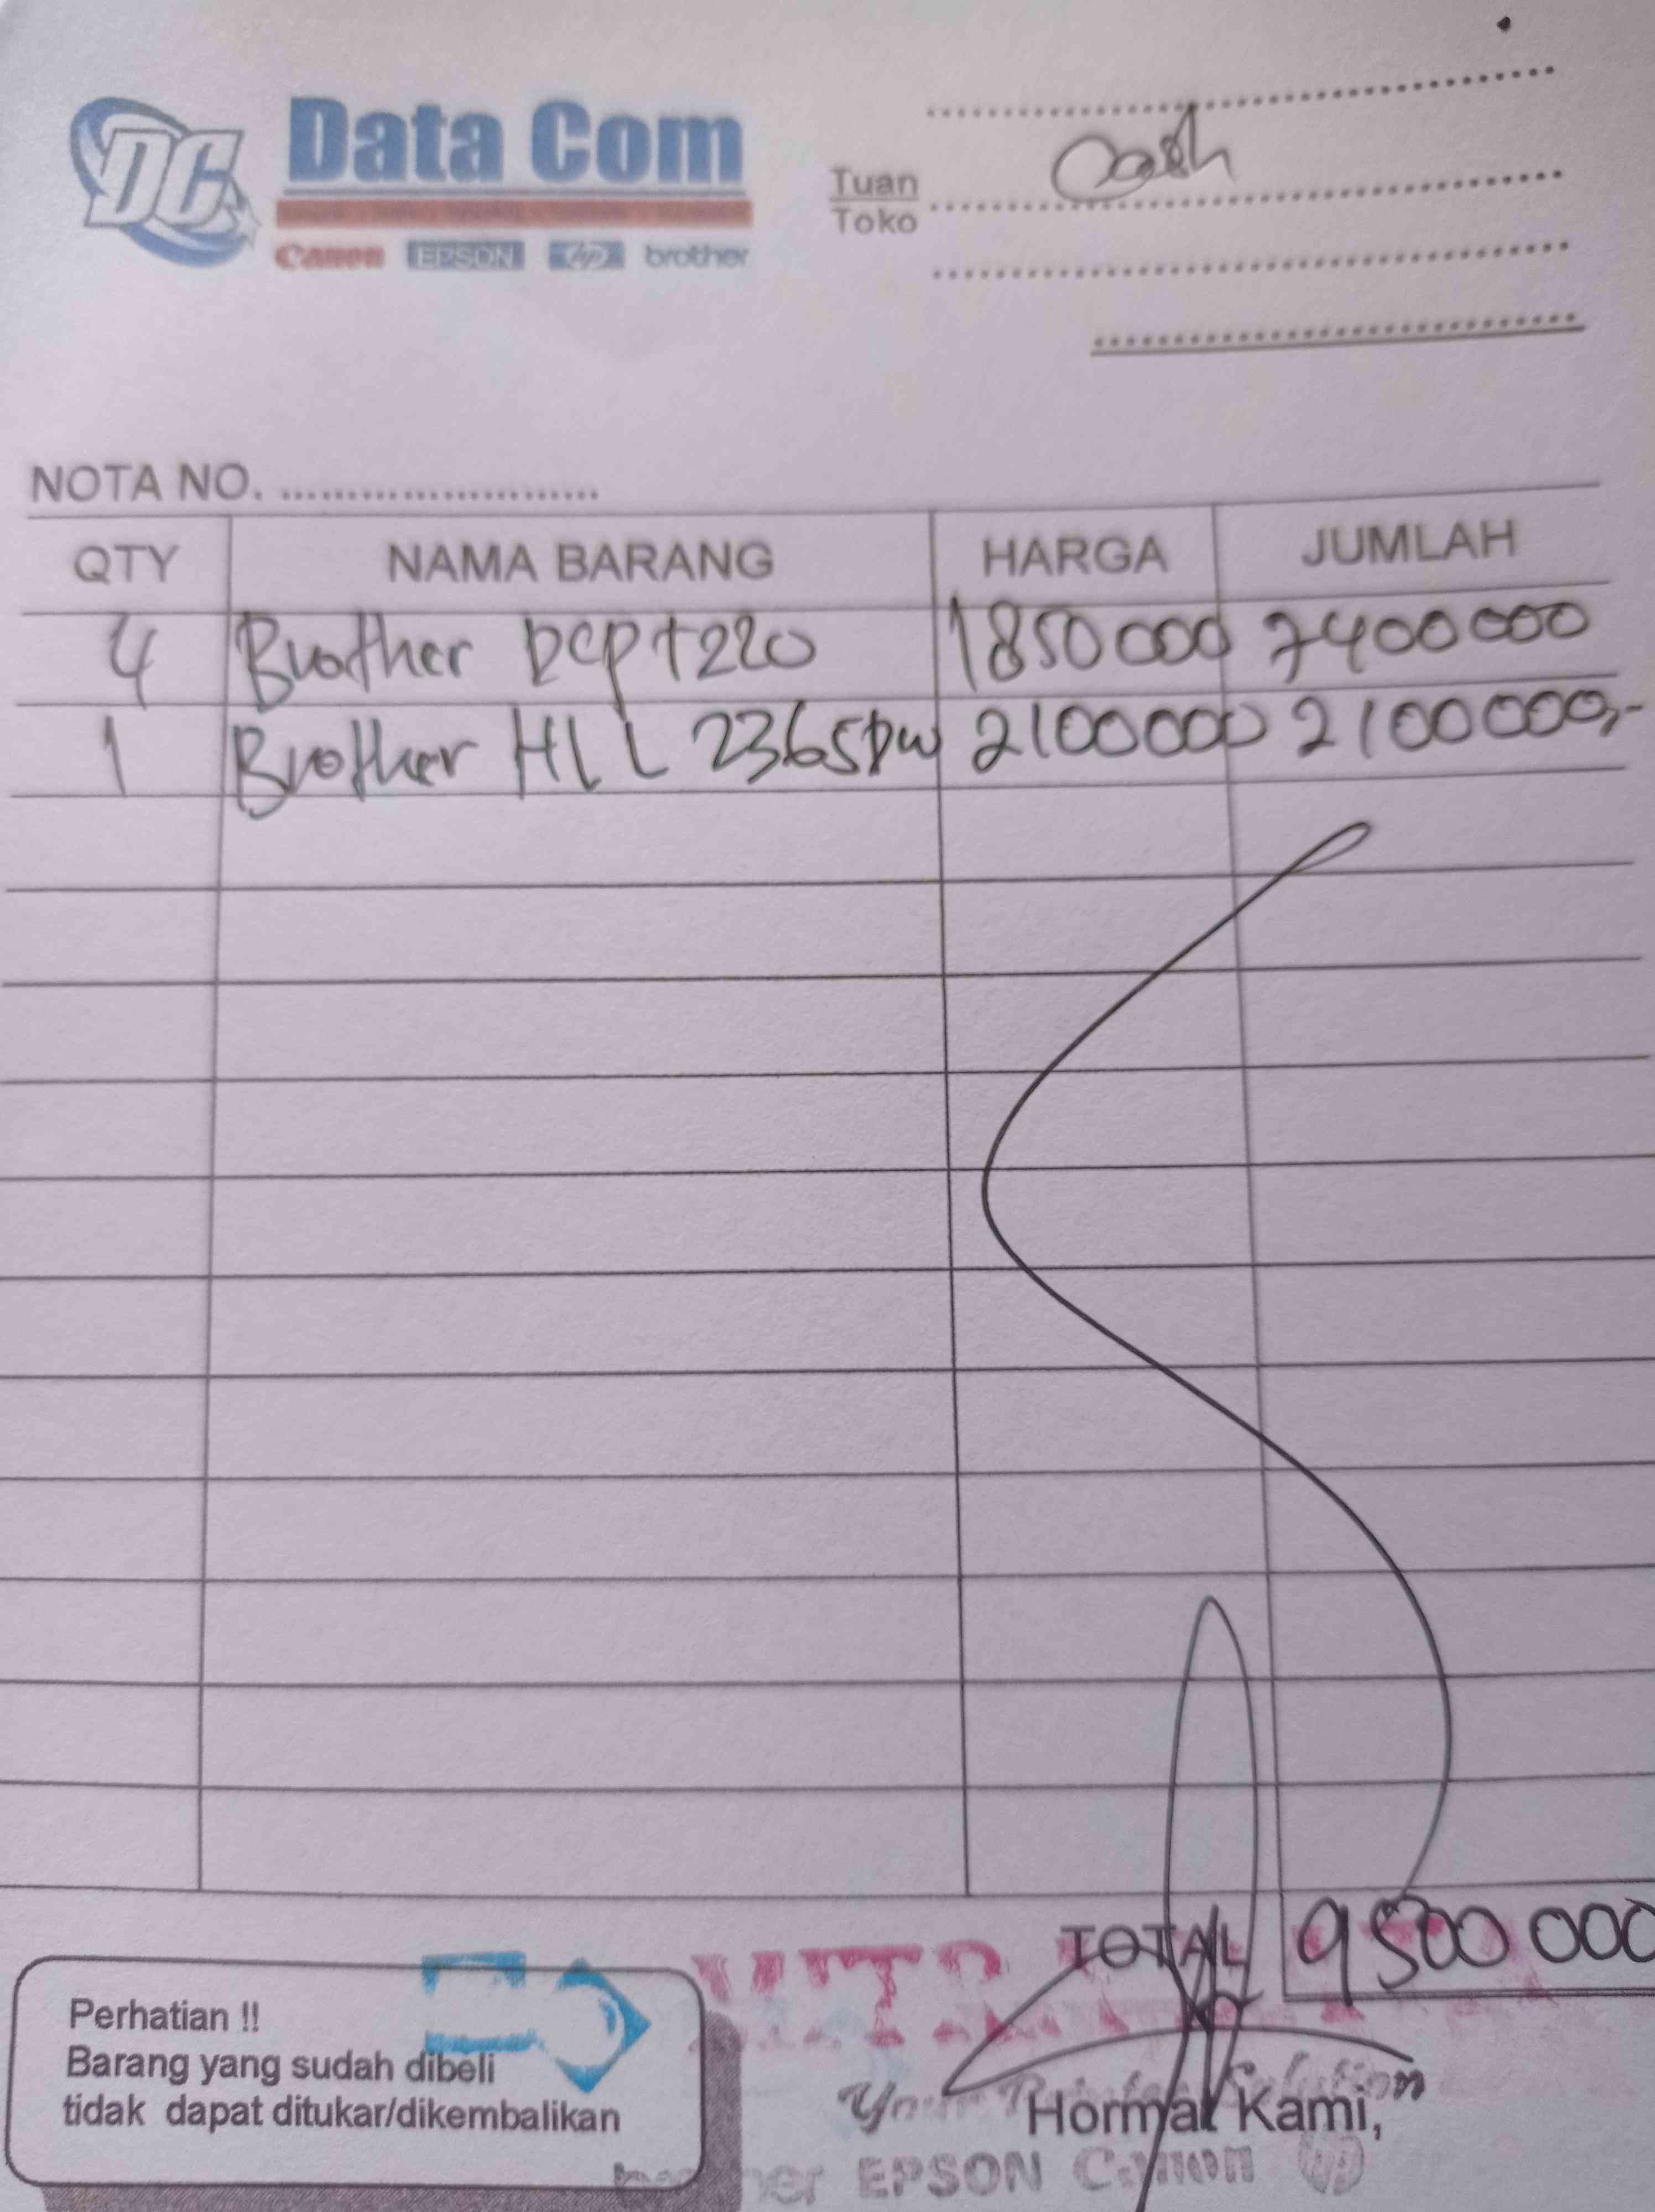 DC
Data Com
Canon EPSON hp brother
Cash
Tuan
Toko
NOTA NO. ........................
QTY NAMA BARANG HARGA JUMLAH
4 Brother DCP T220 1850000 7400000
1 Brother HL L 2365DW 2100000 2100000,-
TOTAL 9500 000
Perhatian !!
Barang yang sudah dibeli
tidak dapat ditukar/dikembalikan
Your Printer Solution
Hormat Kami,
brother EPSON Canon hp